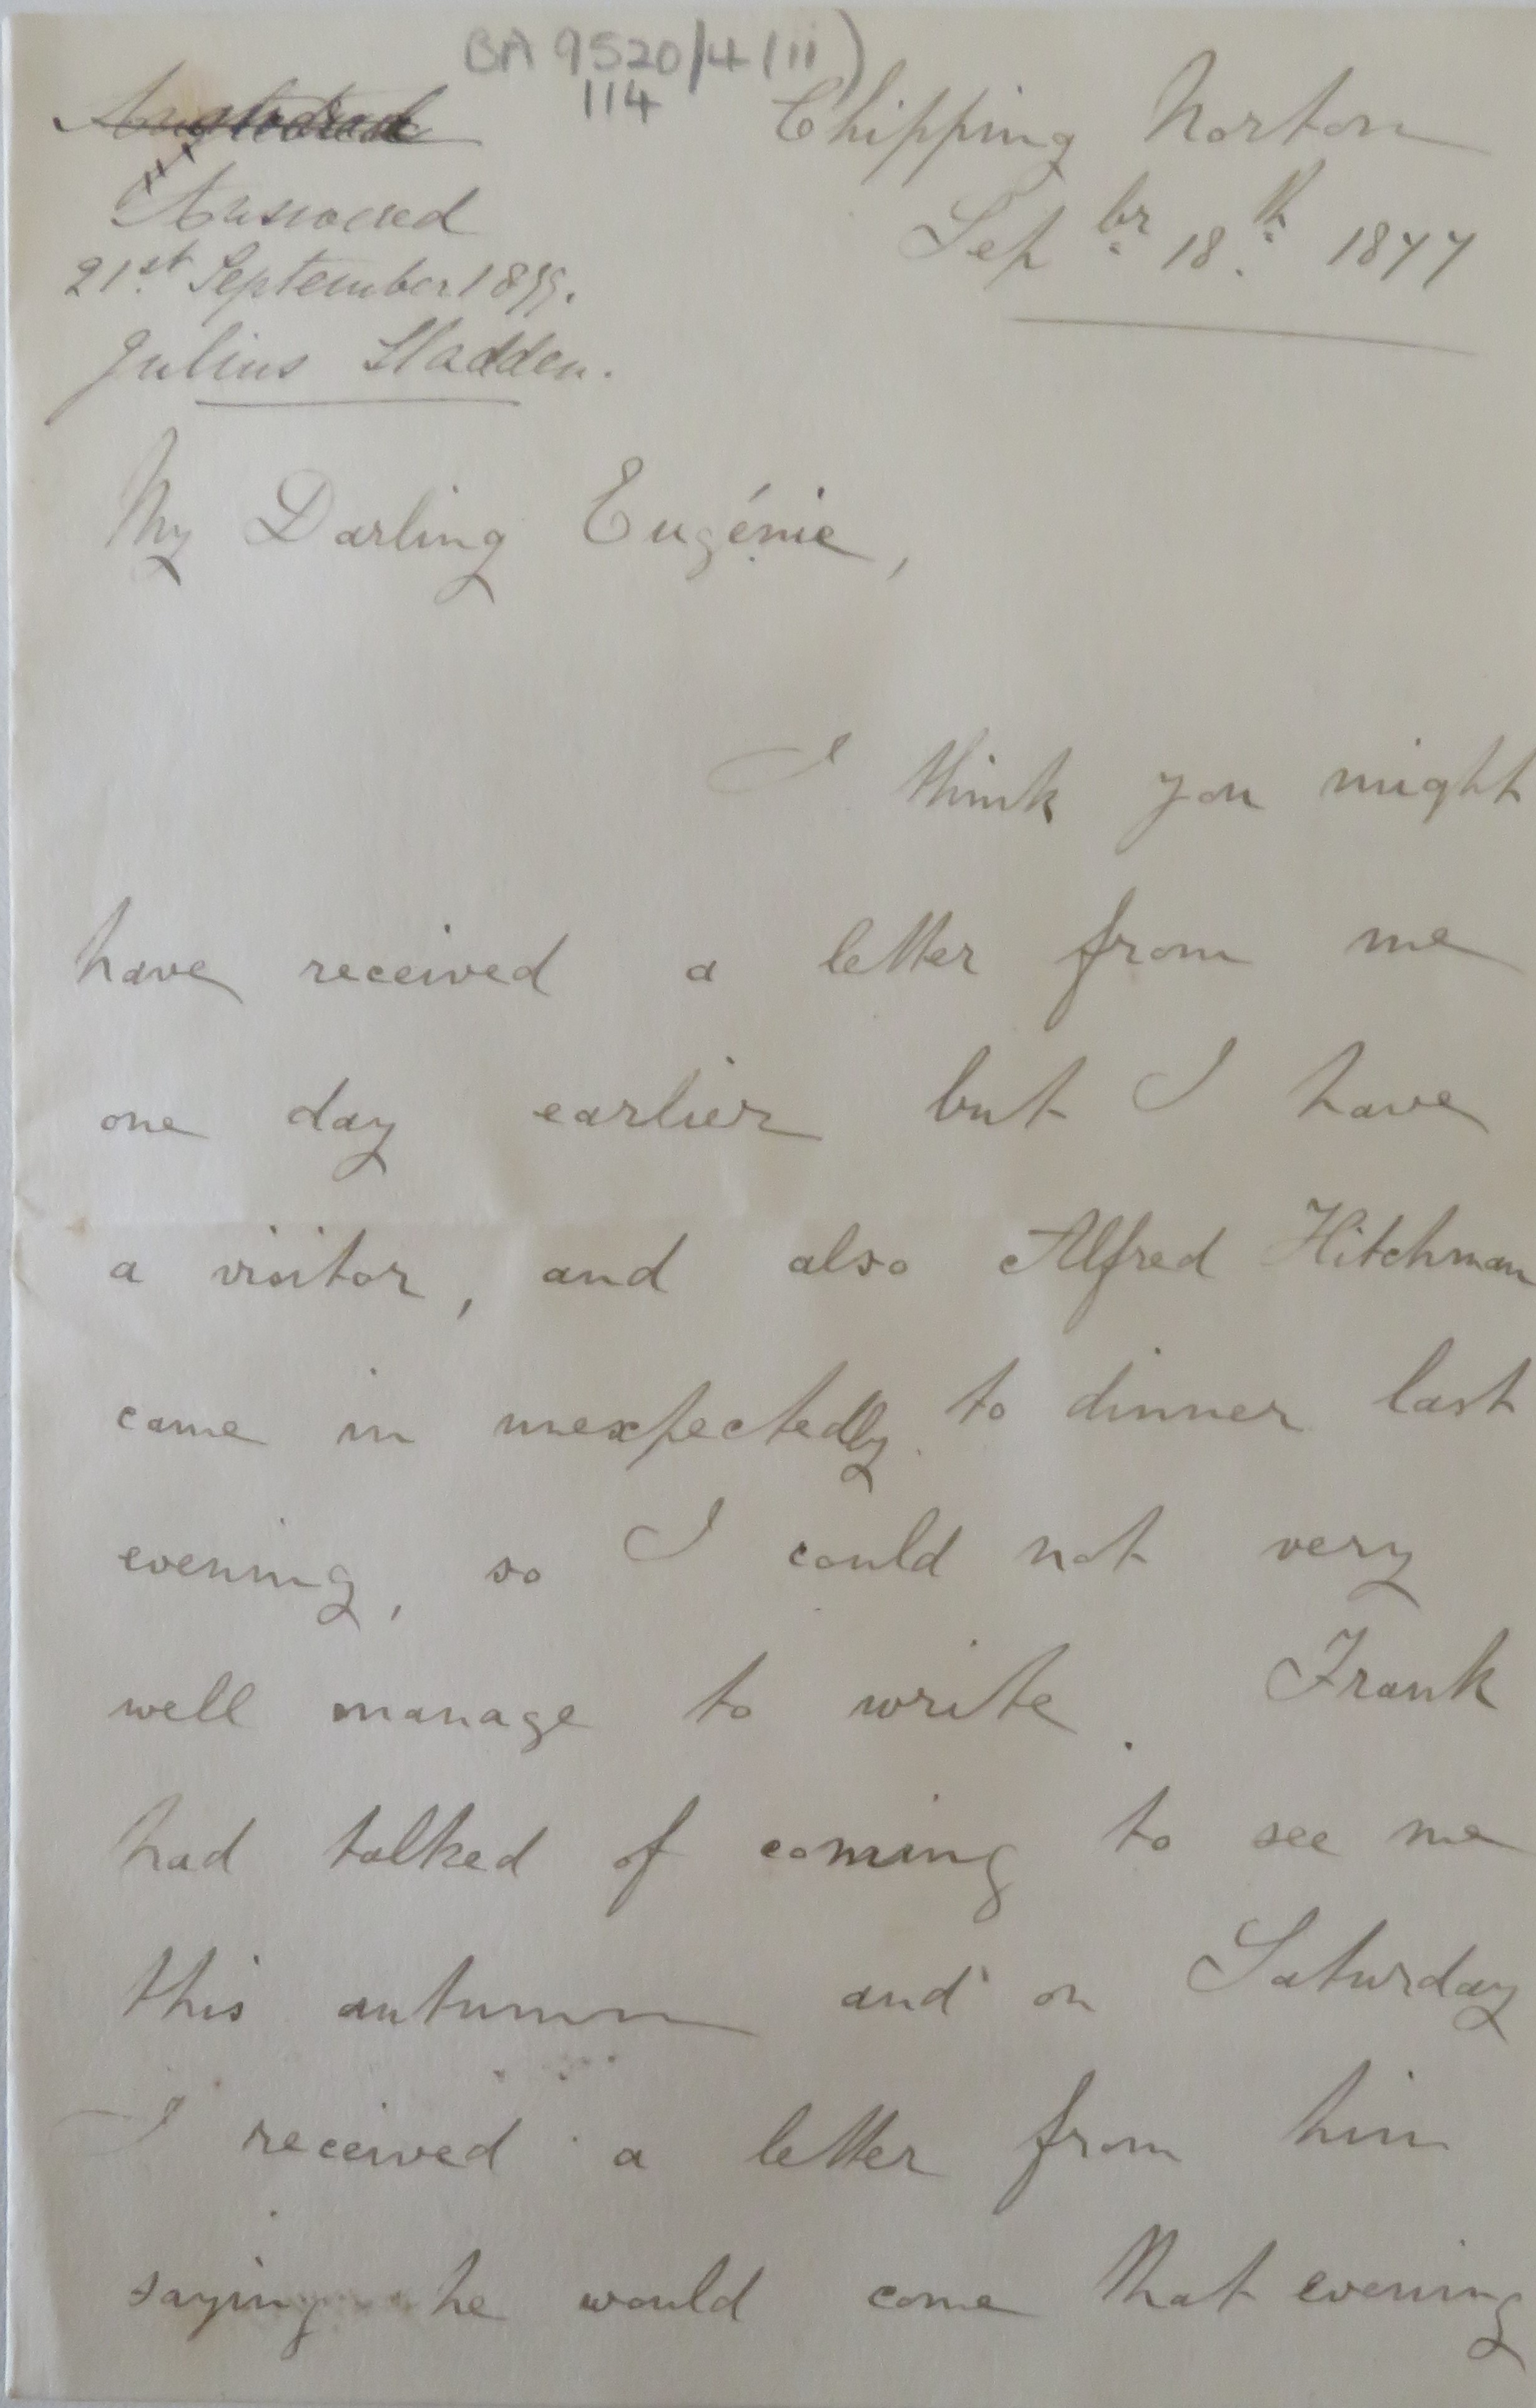 BA 9520/4 (ii)
114
Chipping Norton
Sepbr 18th 1877
Answered
21st September 1877.
Julius Sladden.
My Darling Eugénie,
I think you might
have received a letter from me
one day earlier but I have
a visitor, and also Alfred Hitchman
came in unexpectedly to dinner last
evening, so I could not very
well manage to write. Frank
had talked of coming to see me
this autumn and on Saturday
I received a letter from him
saying he would come that evening